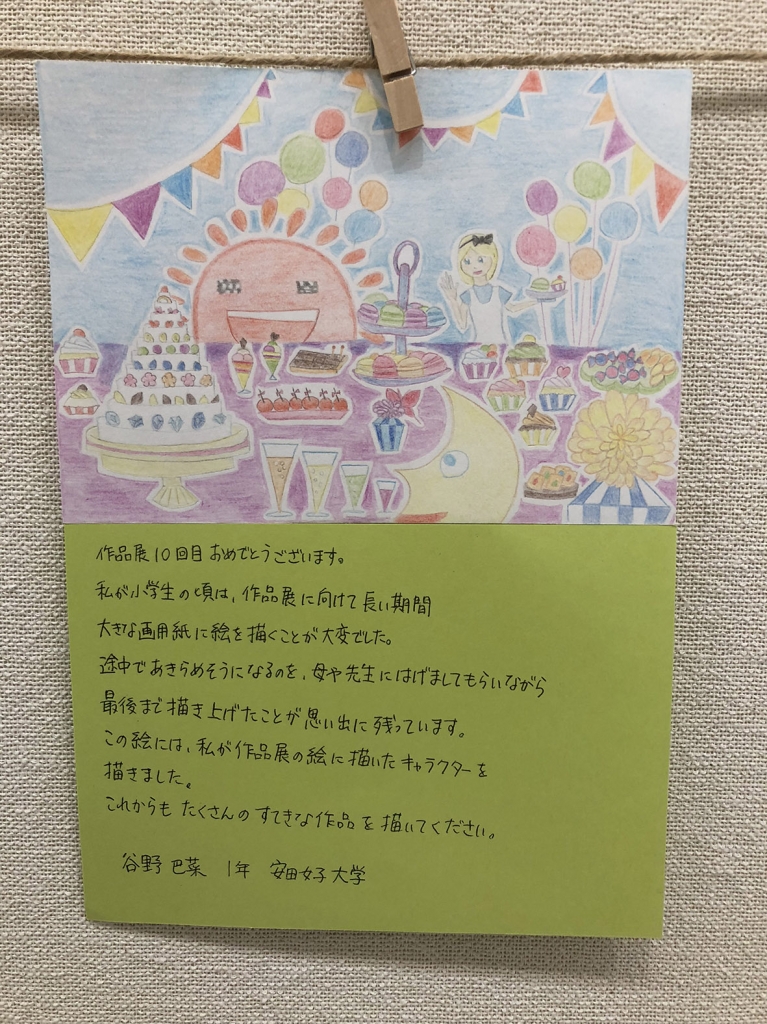 作品展10回目おめでとうございます。
私が小学生の頃は、作品展に向けて長い期間
大きな画用紙に絵を描くことが大変でした。
途中であきらめそうになるのを、母や先生にはげましてもらいながら
最後まで描き上げたことが思い出に残っています。
この絵には、私が作品展の絵に描いたキャラクターを
描きました。
これからもたくさんのすてきな作品を描いてください。
谷野巴菜 1年 安田女子大学